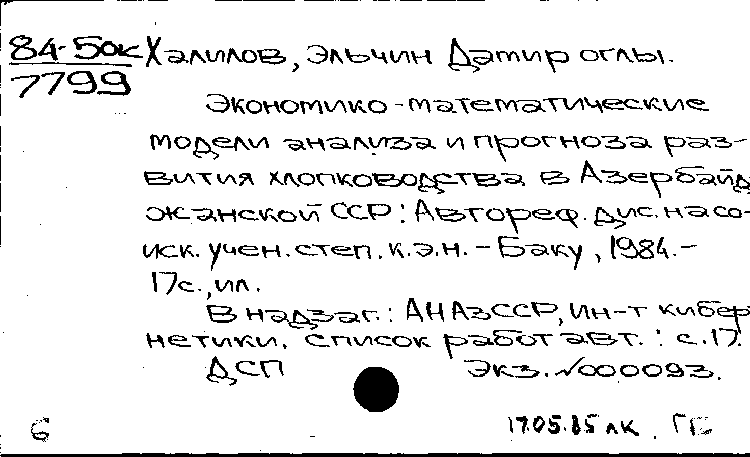 84-5ок Халилов, Эльчин Дамир оглы.
7799
Экономико-математические
модели анализа и прогноза раз-
вития хлопководства в Азербайд
жанской ССР: Автореф. дис. на со-
иск. учен. степ. к.э.н. - Баку, 1984. -
17с., ил.
В надзаг.: АНАзССР, Ин-т кибер
нетики. Список работ авт.: с.17.
ДСП Экз. №000093.
6 17.05.85 ЛК. ГБ